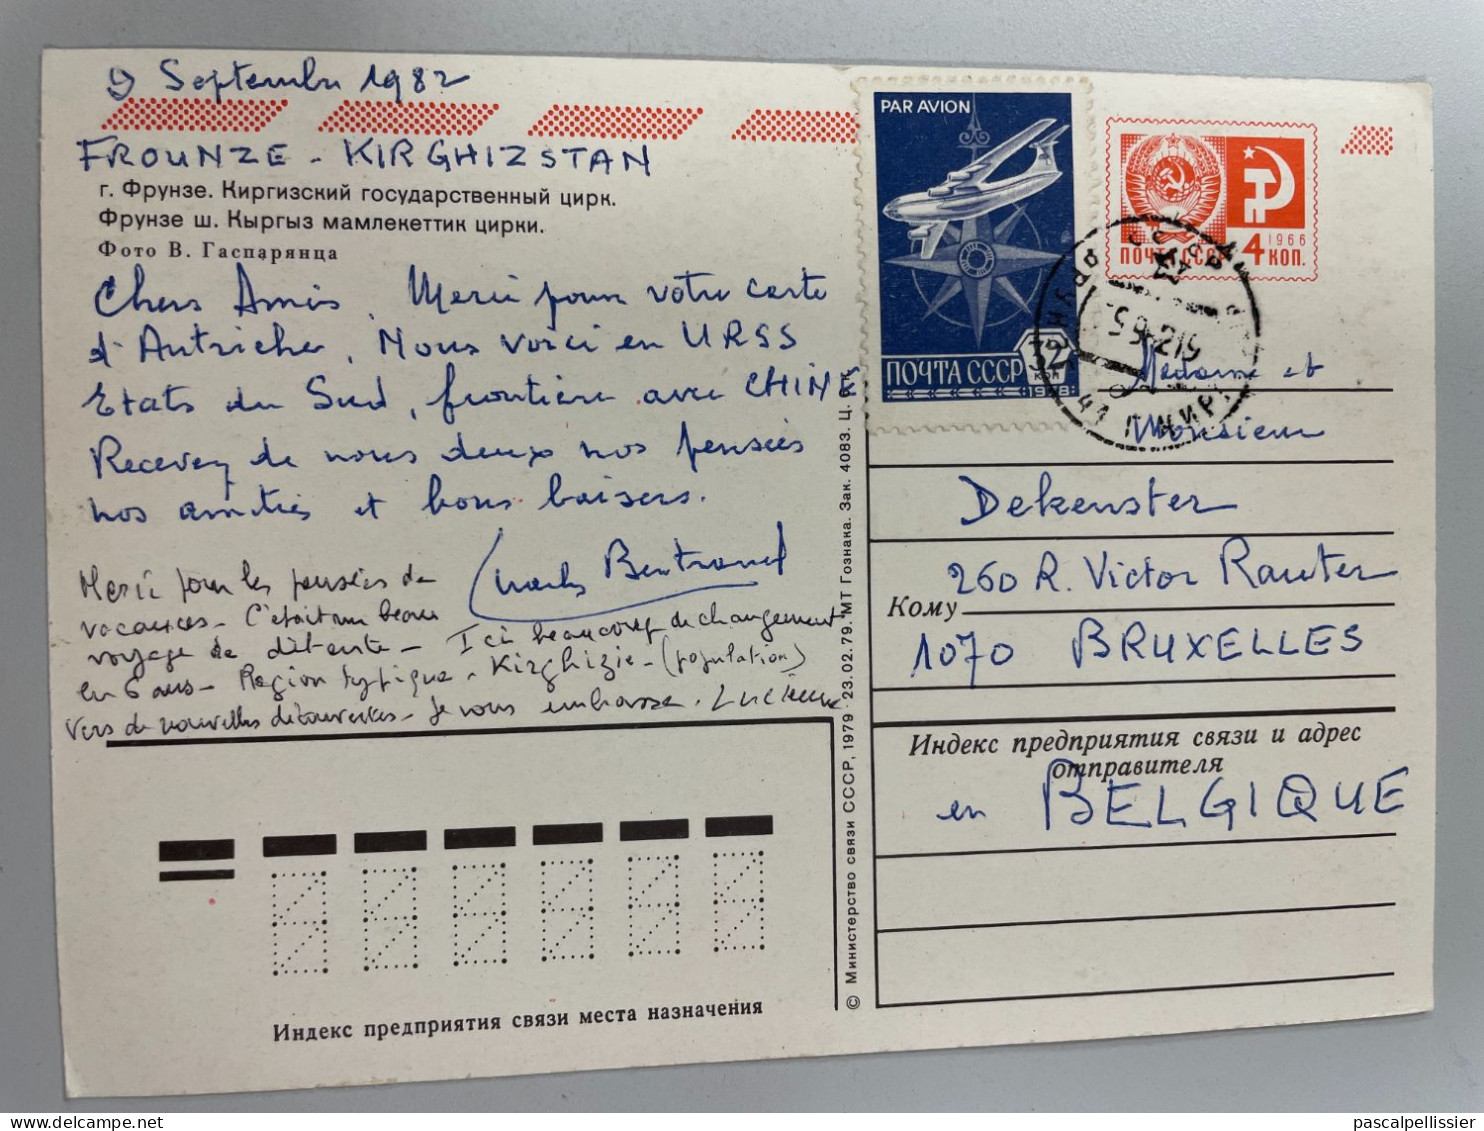 9 Septembre 1982
FROUNZE - KIRGHIZSTAN
г. Фрунзе. Киргизский государственный цирк.
Фрунзе ш. Кыргыз мамлекеттик цирки.
Фото В. Гаспарянца
Chers Amis, Merci pour votre carte
d'Autriche, Nous voici en URSS
Etats du Sud, frontière avec CHINE
Recevez de nous deux nos pensées
nos amitiés et bons baisers.
Charles Bertrand
Merci pour les pensées de
vacances - C'était un beau
voyage de détente - Ici beaucoup de changement
en 6 ans - Région typique - Kirghizie - (population)
Vers de nouvelles découvertes - Je vous embrasse. Lucienne
Индекс предприятия связи места назначения
© Министерство связи СССР, 1979 · 23.02.79. МТ Гознака. Зак. 4083. Ц.
PAR AVION
ПОЧТА СССР 32 КОП
1978
1966
ПОЧТА СССР 4 КОП.
Madame et
Monsieur
Dekenster
260 R. Victor Rauter
Кому
1070 BRUXELLES
Индекс предприятия связи и адрес
отправителя
en BELGIQUE
pascalpellissier